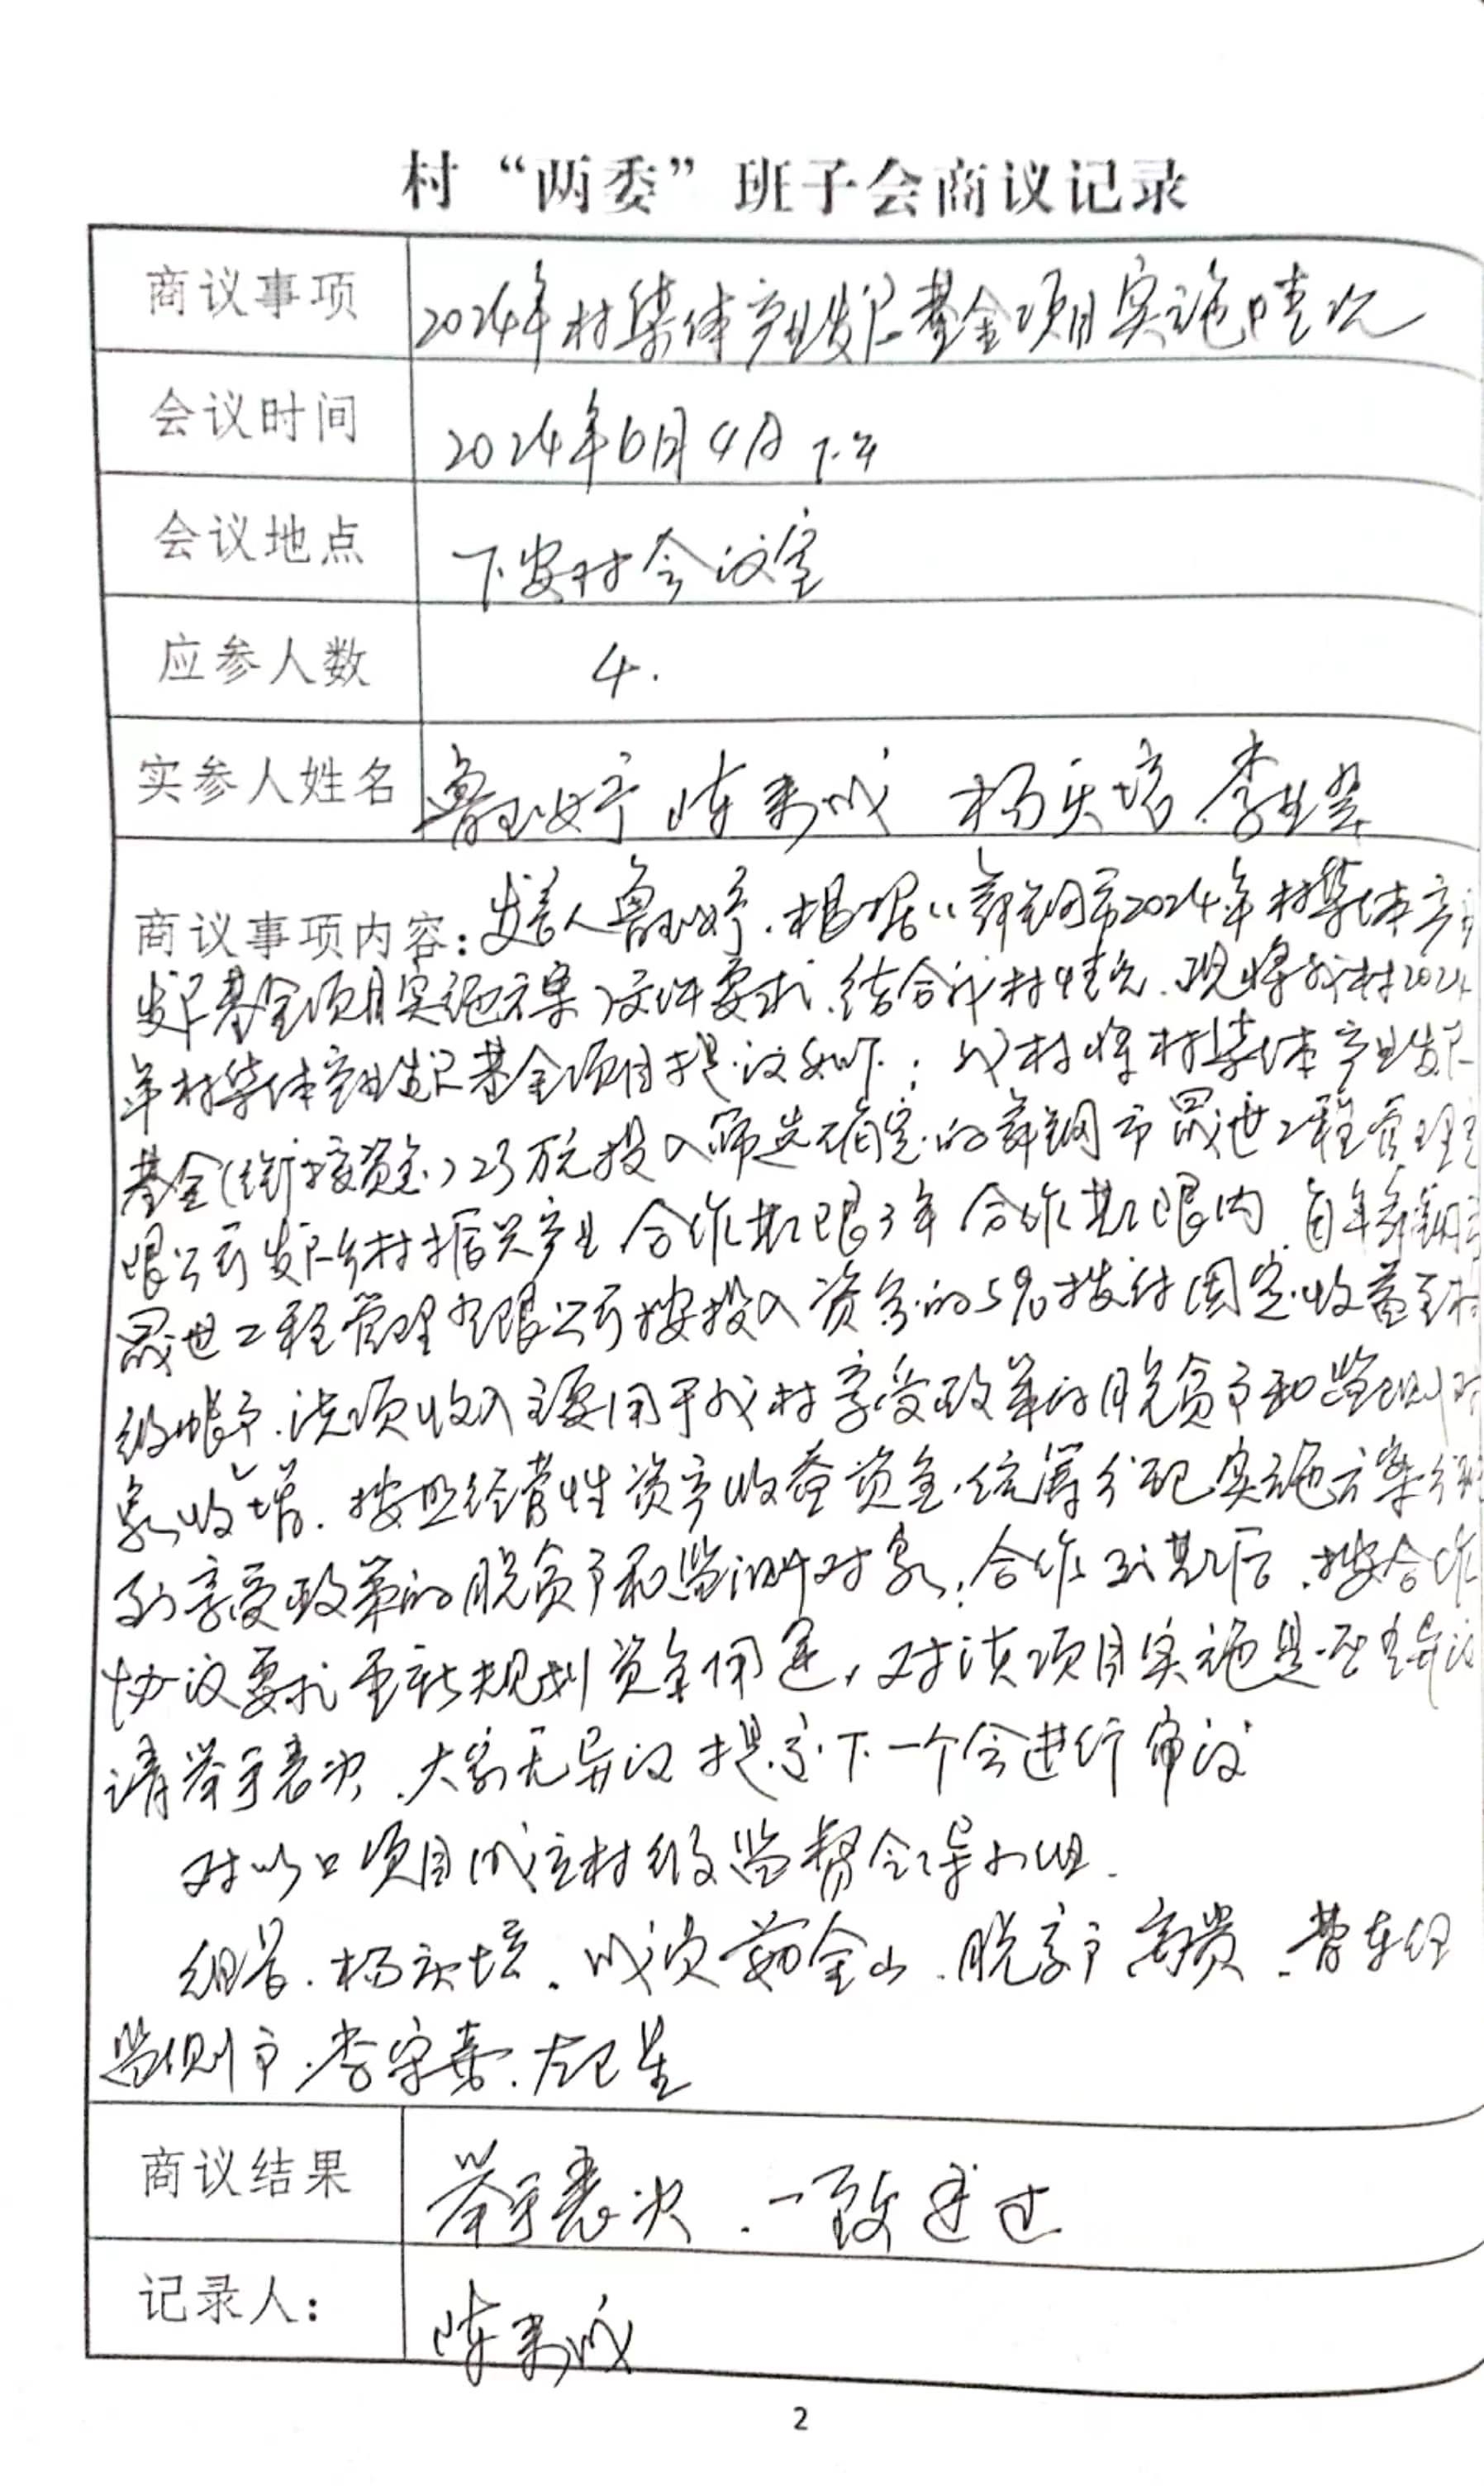 村“两委”班子会商议记录
商议事项 2024年村集体产业发展基金项目实施情况
会议时间 2024年6月4日下午
会议地点 下安村会议室
应参人数 4.
实参人姓名 鲁 陈来成 杨庆培 李
商议事项内容：发言人鲁.根据《舞钢市2024年村集体产业
发展基金项目实施方案》文件要求,结合我村情况.现将我村2024
年村集体产业发展基金项目提议如下：我村将村集体产业发展
基金(衔接资金)23万元投入筛选确定的舞钢市晟世工程管理有
限公司发展乡村振兴产业 合作期限3年 合作期限内.每年舞钢市
晟世工程管理有限公司按投入资金的5%拨付固定收益至村
级帐户.该项收入主要用于我村享受政策的脱贫户和监测对
象收增.按照经营性资产收益资金统筹分配实施方案分配
到享受政策的脱贫户和监测对象；合作到期后.按合作
协议要求重新规划资金用途,对该项目实施是否有异议
请举手表决.大家无异议提交下一个会进行审议
对以上项目成立村级监督领导小组.
组长.杨庆培.成员 金山.脱贫户 高贵.曹
监测户.李.
商议结果 举手表决.一致通过
记录人： 陈来成
2